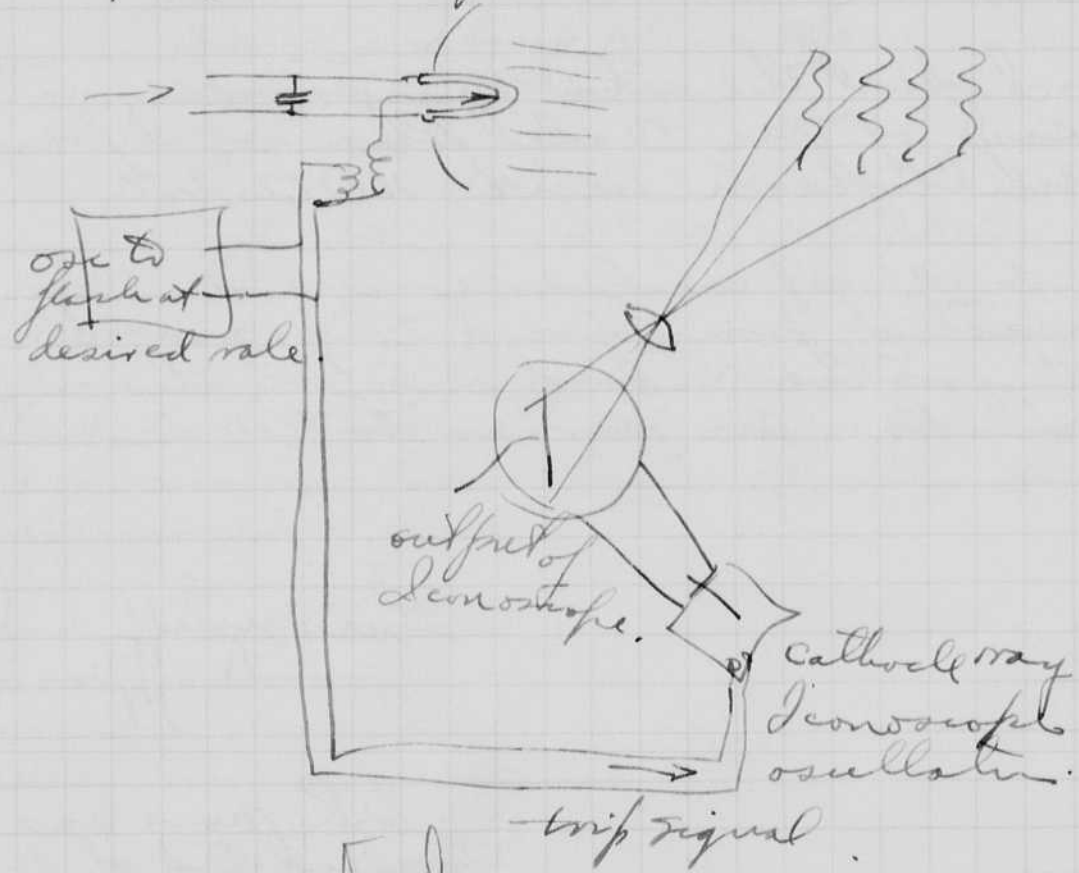 osc to
flash at
desired rate
output of
Iconoscope.
cathode ray
Iconoscope
oscillator.
trip signal